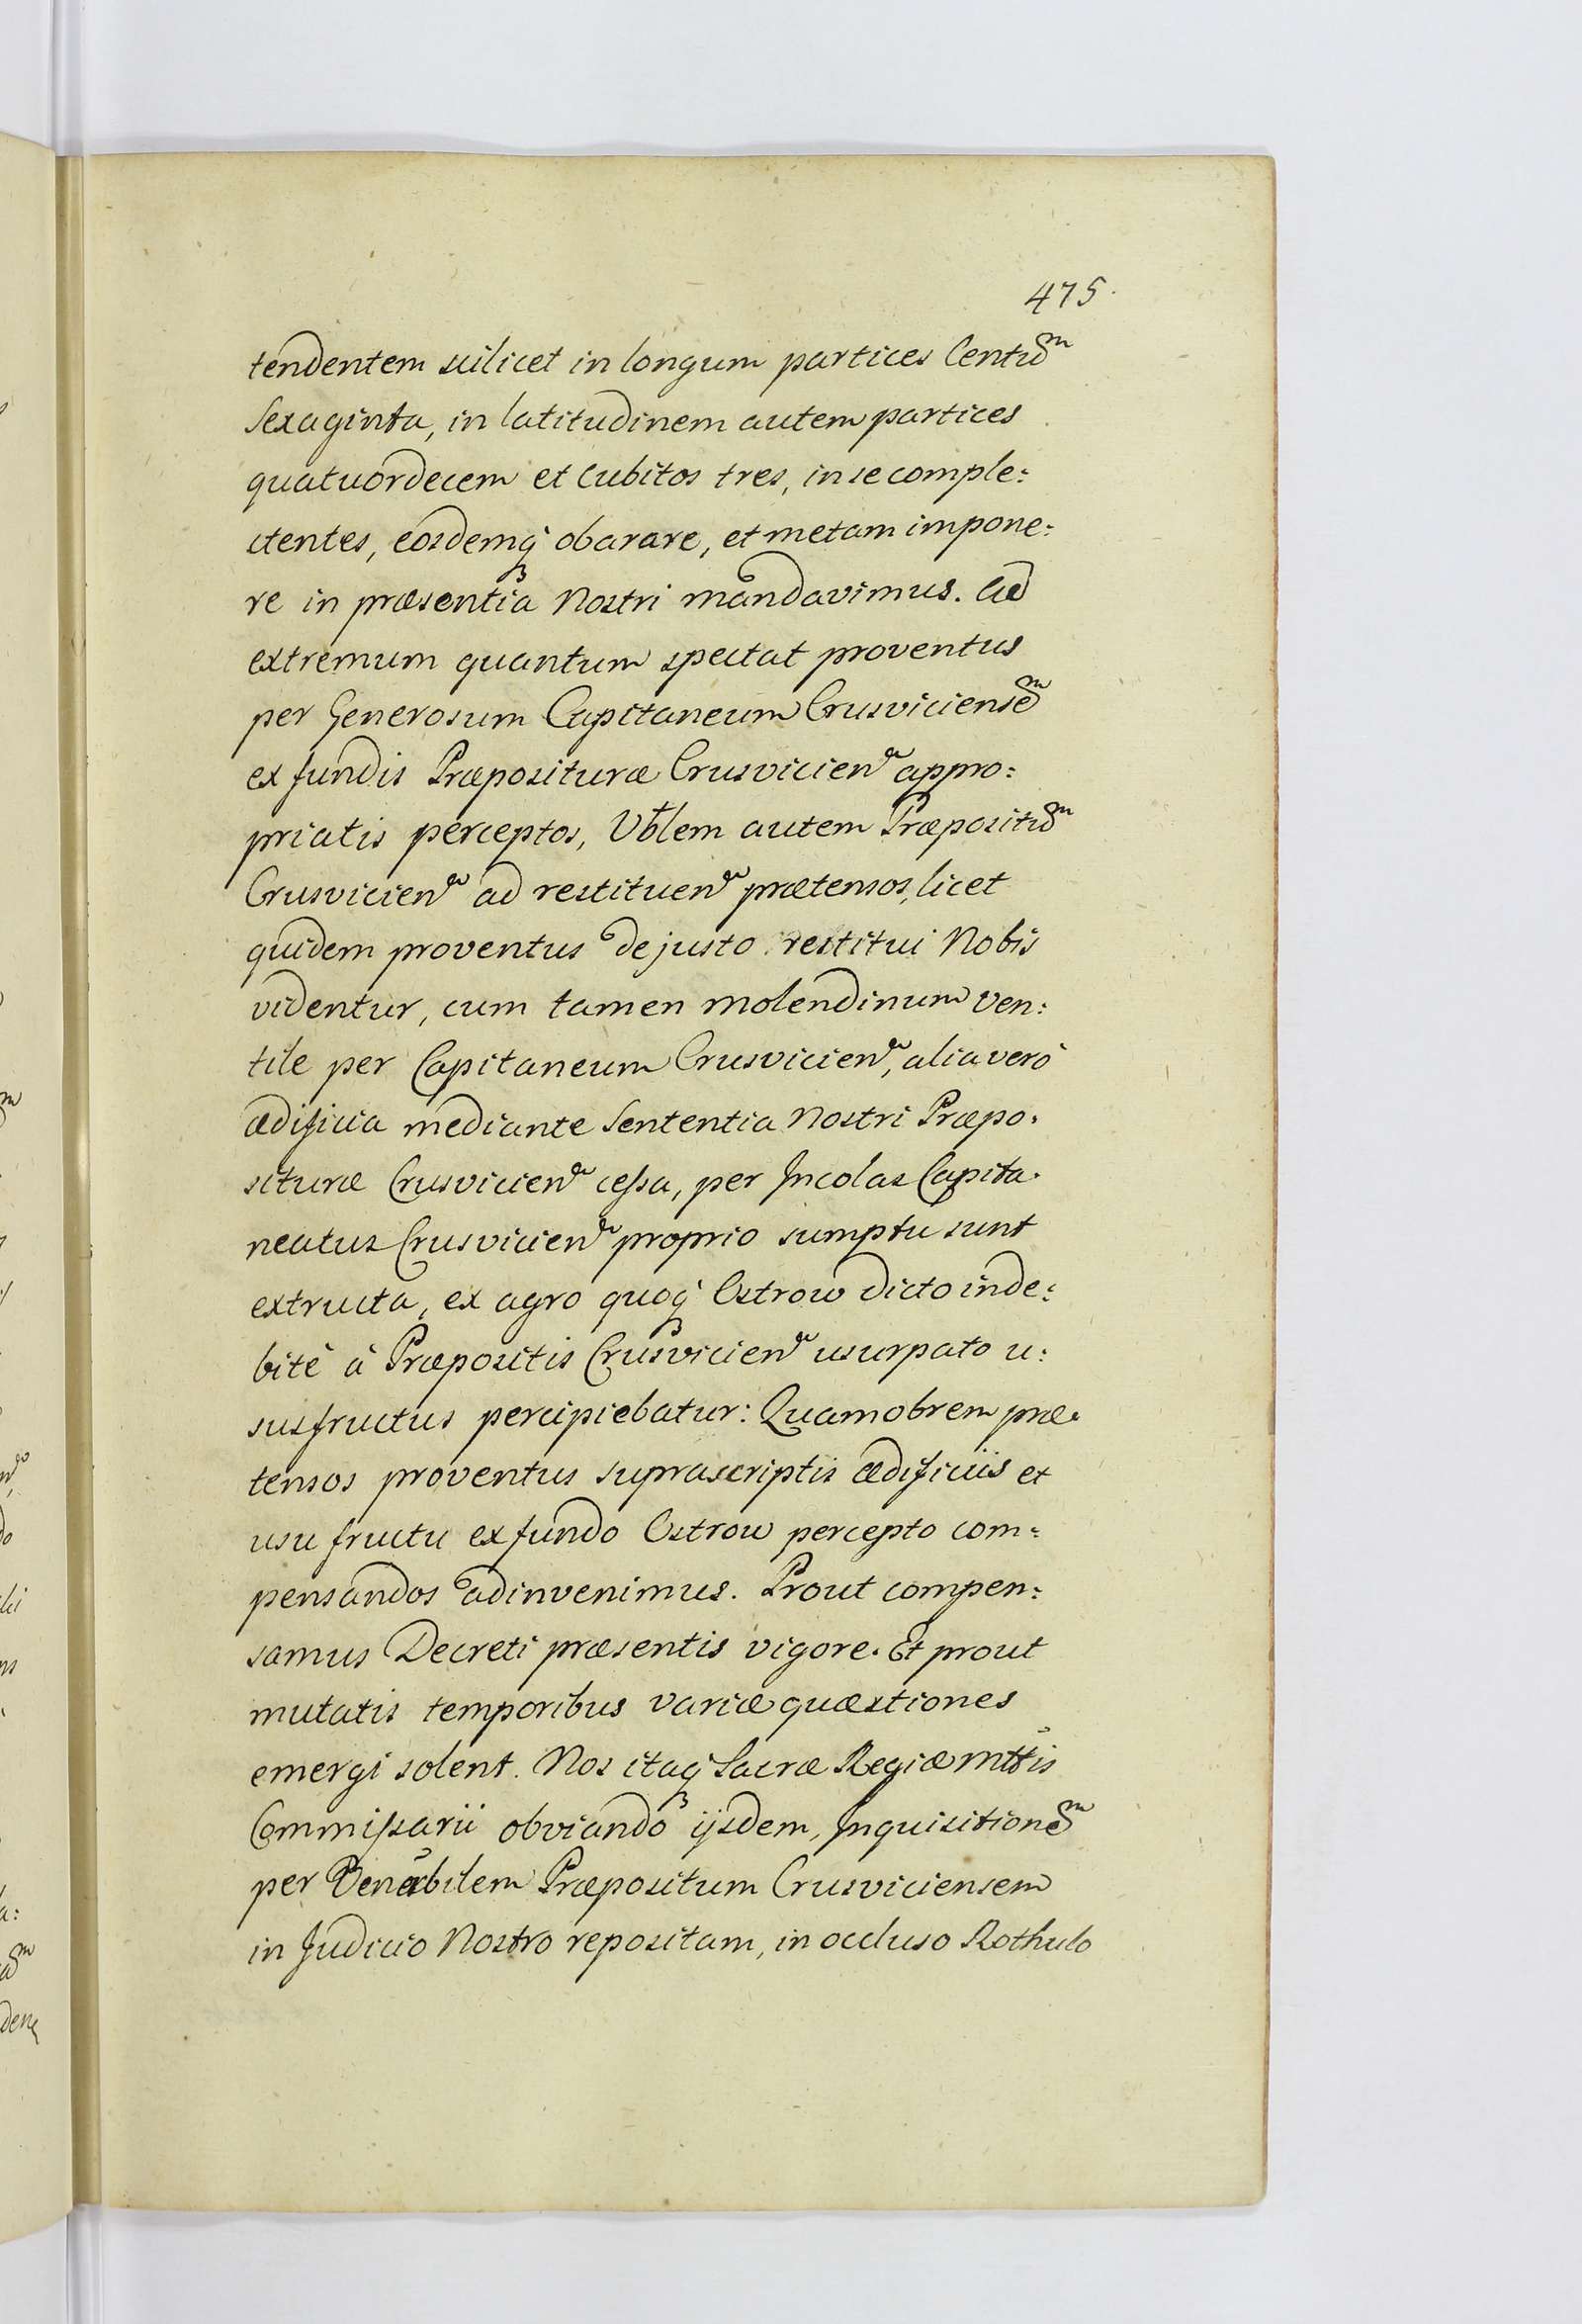 475.
tendentem scilicet in longum partices Centũm
Sexaginta, in latitudinem autem partices
quatuordecem et Cubitos tres, in se comple:
ctentes, eosdemq́ obarare, et metam impone:
re in præsentia Nostri mandavimus. Ad
extremum quantum spectat proventus
per Generosum Capitaneum Crusviciensem
ex fundis Præposituræ Crusvicien appro:
priatis perceptos, Vblem autem Præpositum
Crusvicien ad restituen prætensos, licet
quidem proventus de justo restitui Nobis
videntur, cum tamen molendinum ven:
tile per Capitaneum Crusvicien, alia verò
ædificia mediante Sententia Nostri Præpo:
situræ Crusvicien cessa, per Incolas Capita:
neatus Crusvicien proprio sumptu sunt
extructa, ex agro quoq́ Ostrow dicto inde:
bitè à Præpositis Crusvicien usurpato u:
susfructus percipiebatur: Quamobrem præ:
tensos proventus suprascriptis ædificiis et
usu fructu ex fundo Ostrow percepto com:
pensandos adinvenimus. Prout compen:
samus Decreti præsentis vigore. Et prout
mutatis temporibus variæ quæstiones
emergi solent. Nos itaq́ Sacræ Regiæ Mttis
Commissarii obviando ijsdem, Inquisitionem
per Venerabilem Præpositum Crusviciensem
in Judicio Nostro repositam, in occluso Rothulo